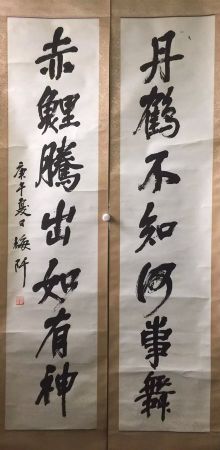 丹鶴不知何事舞
赤鯉騰出如有神
庚午夏日